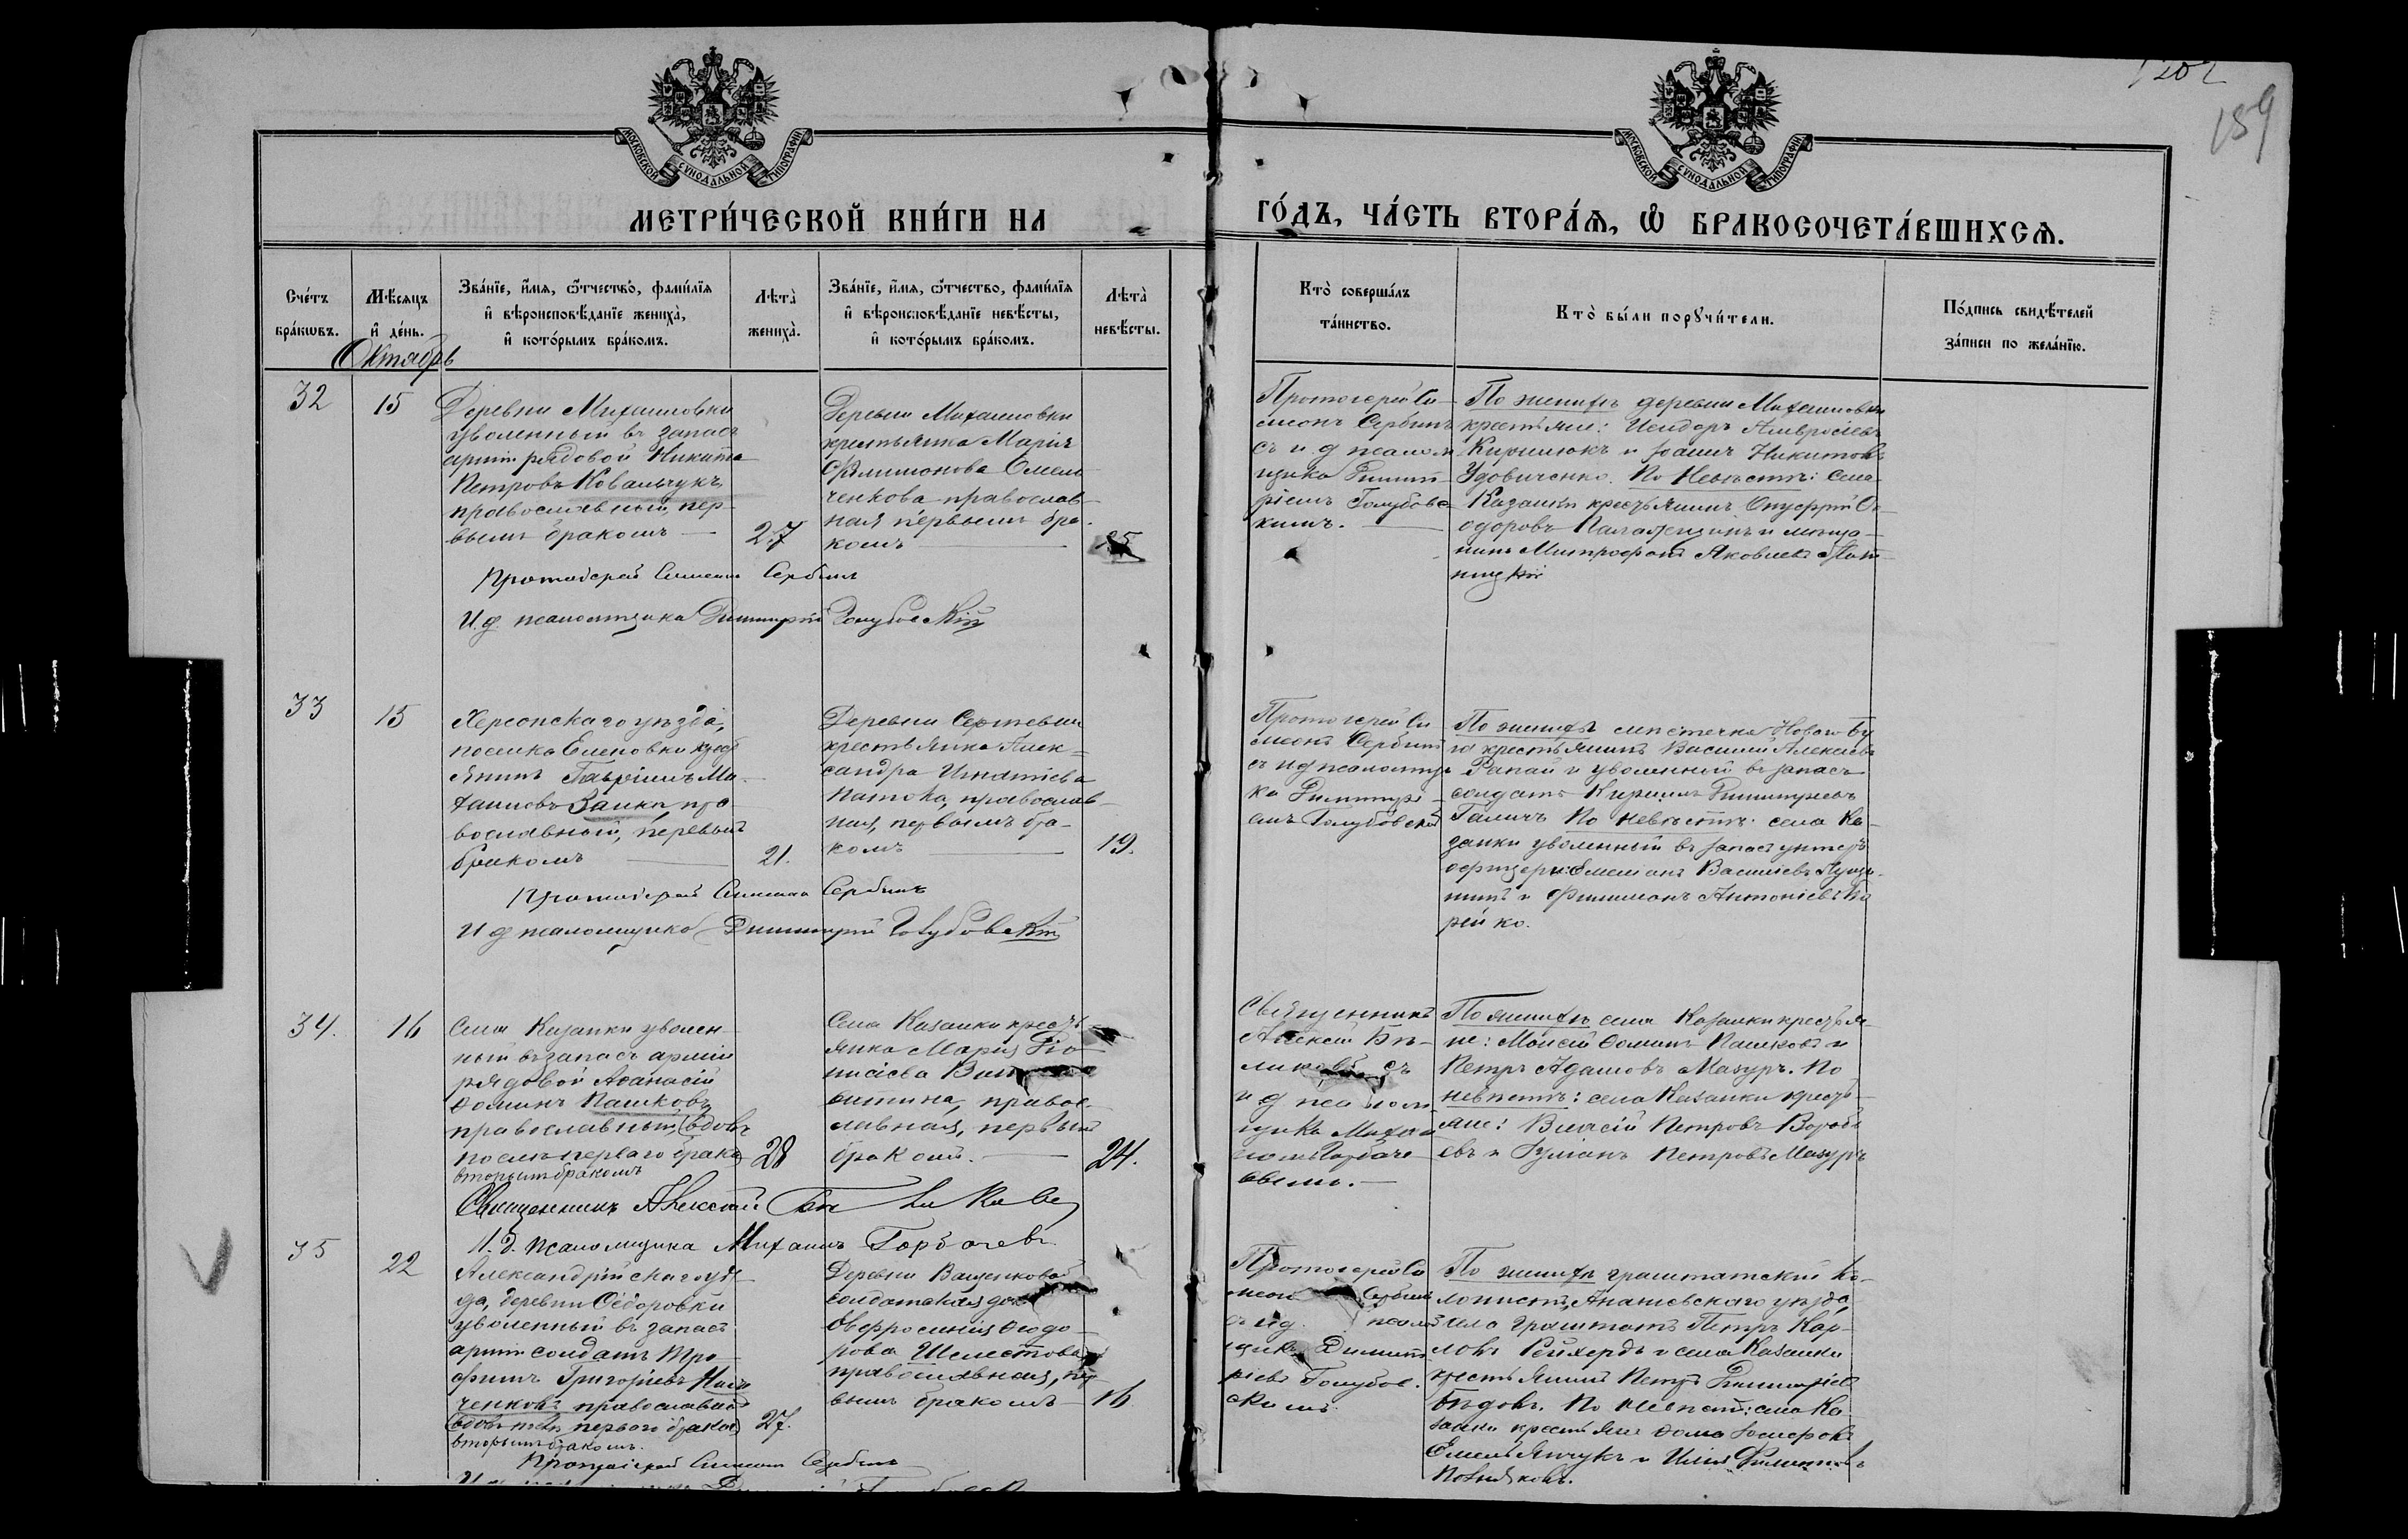 1202
159
МОСКОВСКОЙ СѴНОДАЛЬНОЙ ТИПОГРАФІИ
МОСКОВСКОЙ СѴНОДАЛЬНОЙ ТИПОГРАФІИ
МЕТРИ́ЧЕСКОЙ КНИ́ГИ НА
ГО́ДЪ, ЧА́СТЬ ВТОРА́Ѧ, Ѽ БРАКОСОЧЕТА́ВШИХСѦ.
Сче́тъ
бра́кѡвъ.
Мѣ́сѧцъ
и҆ де́нь.
Зва́нїе, и҆́мѧ, ѻ҆́тчество, фами́лїѧ
и҆ вѣроисповѣ́данїе жениха̀,
и҆ кото́рымъ бра́комъ.
Лѣта̀
жениха̀.
Зва́нїе, и҆́мѧ, ѻ҆́тчество, фами́лїѧ
и҆ вѣроисповѣ́данїе невѣ́сты,
и҆ кото́рымъ бра́комъ.
Лѣта̀
невѣ́сты.
Кто̀ соверша́лъ
та́инство.
Кто̀ бы́ли порꙋчи́тели.
По́дпись свидѣ́телей
за́писи по жела́нїю.
Октябрь
32
15
Деревни Михайловки
уволенный въ запасъ
арміи рядовой Никита
Петровъ Ковальчукъ,
православный, пер-
вымъ бракомъ
27
Деревни Михайловки
крестьянка Марія
Филимонова Омель-
ченкова православ-
ная первымъ бра-
комъ
25
Протоіерей Си-
меонъ Сербинъ
съ и. д. псалом
щика Димит-
ріемъ Голубовс
кимъ.
По женихѣ деревни Михайловки
крестьяне: Исидоръ Амвросіевъ
Кирилюкъ и Іоаннъ Никитовъ
Удовиченко. По Невѣстѣ: села
Казанки крестьянинъ Онуфрій Ѳе-
одоровъ и мѣща-
нинъ Митрофанъ Яковлевъ
Протоіерей Симеонъ Сербинъ
И. д. псаломщика Димитрій Голубовскій
33
15
Херсонскаго уѣзда,
поселка Еленовки крест
янинъ Гавріилъ Ми-
хаиловъ Заика, пра-
вославный, первымъ
бракомъ
21.
Деревни Сергеевки
крестьянка Алек-
сандра Игнатіева
Патока, православ-
ная, первымъ бра-
комъ
19.
Протоіерей Си
меонъ Сербинъ
съ и д псаломщи
ка Димитрі-
емъ Голубовскій
По женихѣ мѣстечка Новаго Бу
га крестьянинъ Василій Алексіевъ
Рапай и уволенный въ запасъ
солдатъ Кириллъ Димитріевъ
Галичъ По невѣстѣ: села Ка-
занки уволенный въ запасъ унтеръ
офицеръ Емеліанъ Василіевъ
и Филимонъ Антоніевъ Ко
рейко.
Протоіерей Симеонъ Сербинъ
И д псаломщика Димитрій Голубовскій
34.
16
Села Казанки уволен-
ный въ запасъ арміи
рядовой Аѳанасій
Ѳоминъ Пашковъ
православный, вдовъ
послѣ перваго брака
вторымъ бракомъ
28
Села Казанки кресть
янка Марія Діо-
нисіева
православ-
лавная, первымъ
бракомъ.
24.
Священникъ
Алексѣй Бѣ-
ликовъ съ
и д псалом
щика Михаи
ломъ Горбаче-
вымъ.
По женихѣ села Казанки крестья-
не: Моисей Ѳоминъ Пашковъ и
Петръ Адамовъ Мазуръ. По
невѣстѣ: села Казанки кресть-
яне: Власій Петровъ Воробь
евъ и Іуліанъ Петровъ Мазуръ
Священникъ Алексѣй Бѣликовъ
И. д. псаломщика Михаилъ Горбачевъ
35
22
Александрійскаго уѣз-
да, деревни Ѳедоровки
уволенный въ запасъ
арміи солдатъ Тро-
фимъ Григоріевъ
ченковъ православный
вдовъ послѣ перваго брака
вторымъ бракомъ.
27.
Деревни Ващенковой
солдатская дочь
Евфросинія Ѳеодо-
рова Шелестова
православная, пер
вымъ бракомъ
16
Протоіерей Си
меонъ Сербинъ
съ и д. псалом
щика Димит
ріевъ Голубов-
скимъ
По женихѣ грашматскій ко-
лонистъ, Ананьевскаго уѣзда
села Петръ Кар-
ловъ Рейхердъ и села Казанки
крестьянинъ Петръ Димитріевъ
Бѣдовъ. По невѣстѣ: села Ка-
занки крестьяне Ѳома Іосифовъ
Емельянчукъ и Илія Филипповъ
Позняковъ.
Протоіерей Симеонъ Сербинъ